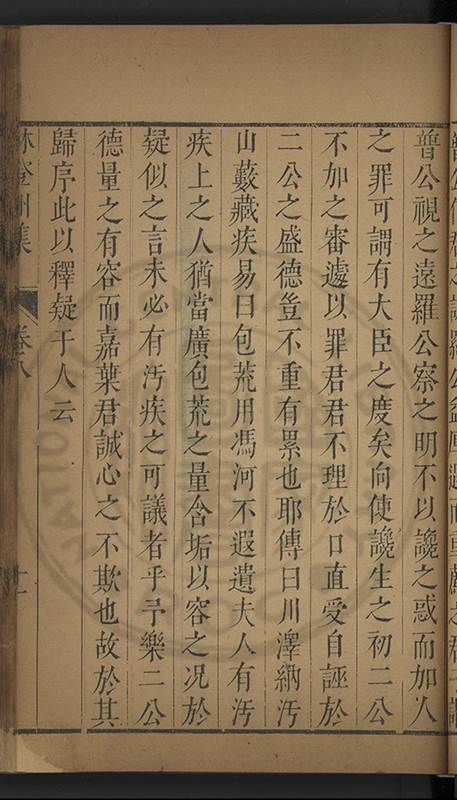 普公視之遠羅公察之明不以讒之惑而加人
之罪可謂有大臣之度矣向使讒生之初二公
不加之審遽以罪君君不理於口直受自誣於
二公之盛德豈不重有累也耶傳曰川澤納汚
山藪藏疾易曰包荒用馮河不遐遺夫人有汚
疾上之人猶當廣包荒之量含垢以容之况於
疑似之言未必有汚疾之可議者乎予樂二公
德量之有容而嘉葉君誠心之不欺也故於其
歸序此以釋疑于人云
林登州集 卷八